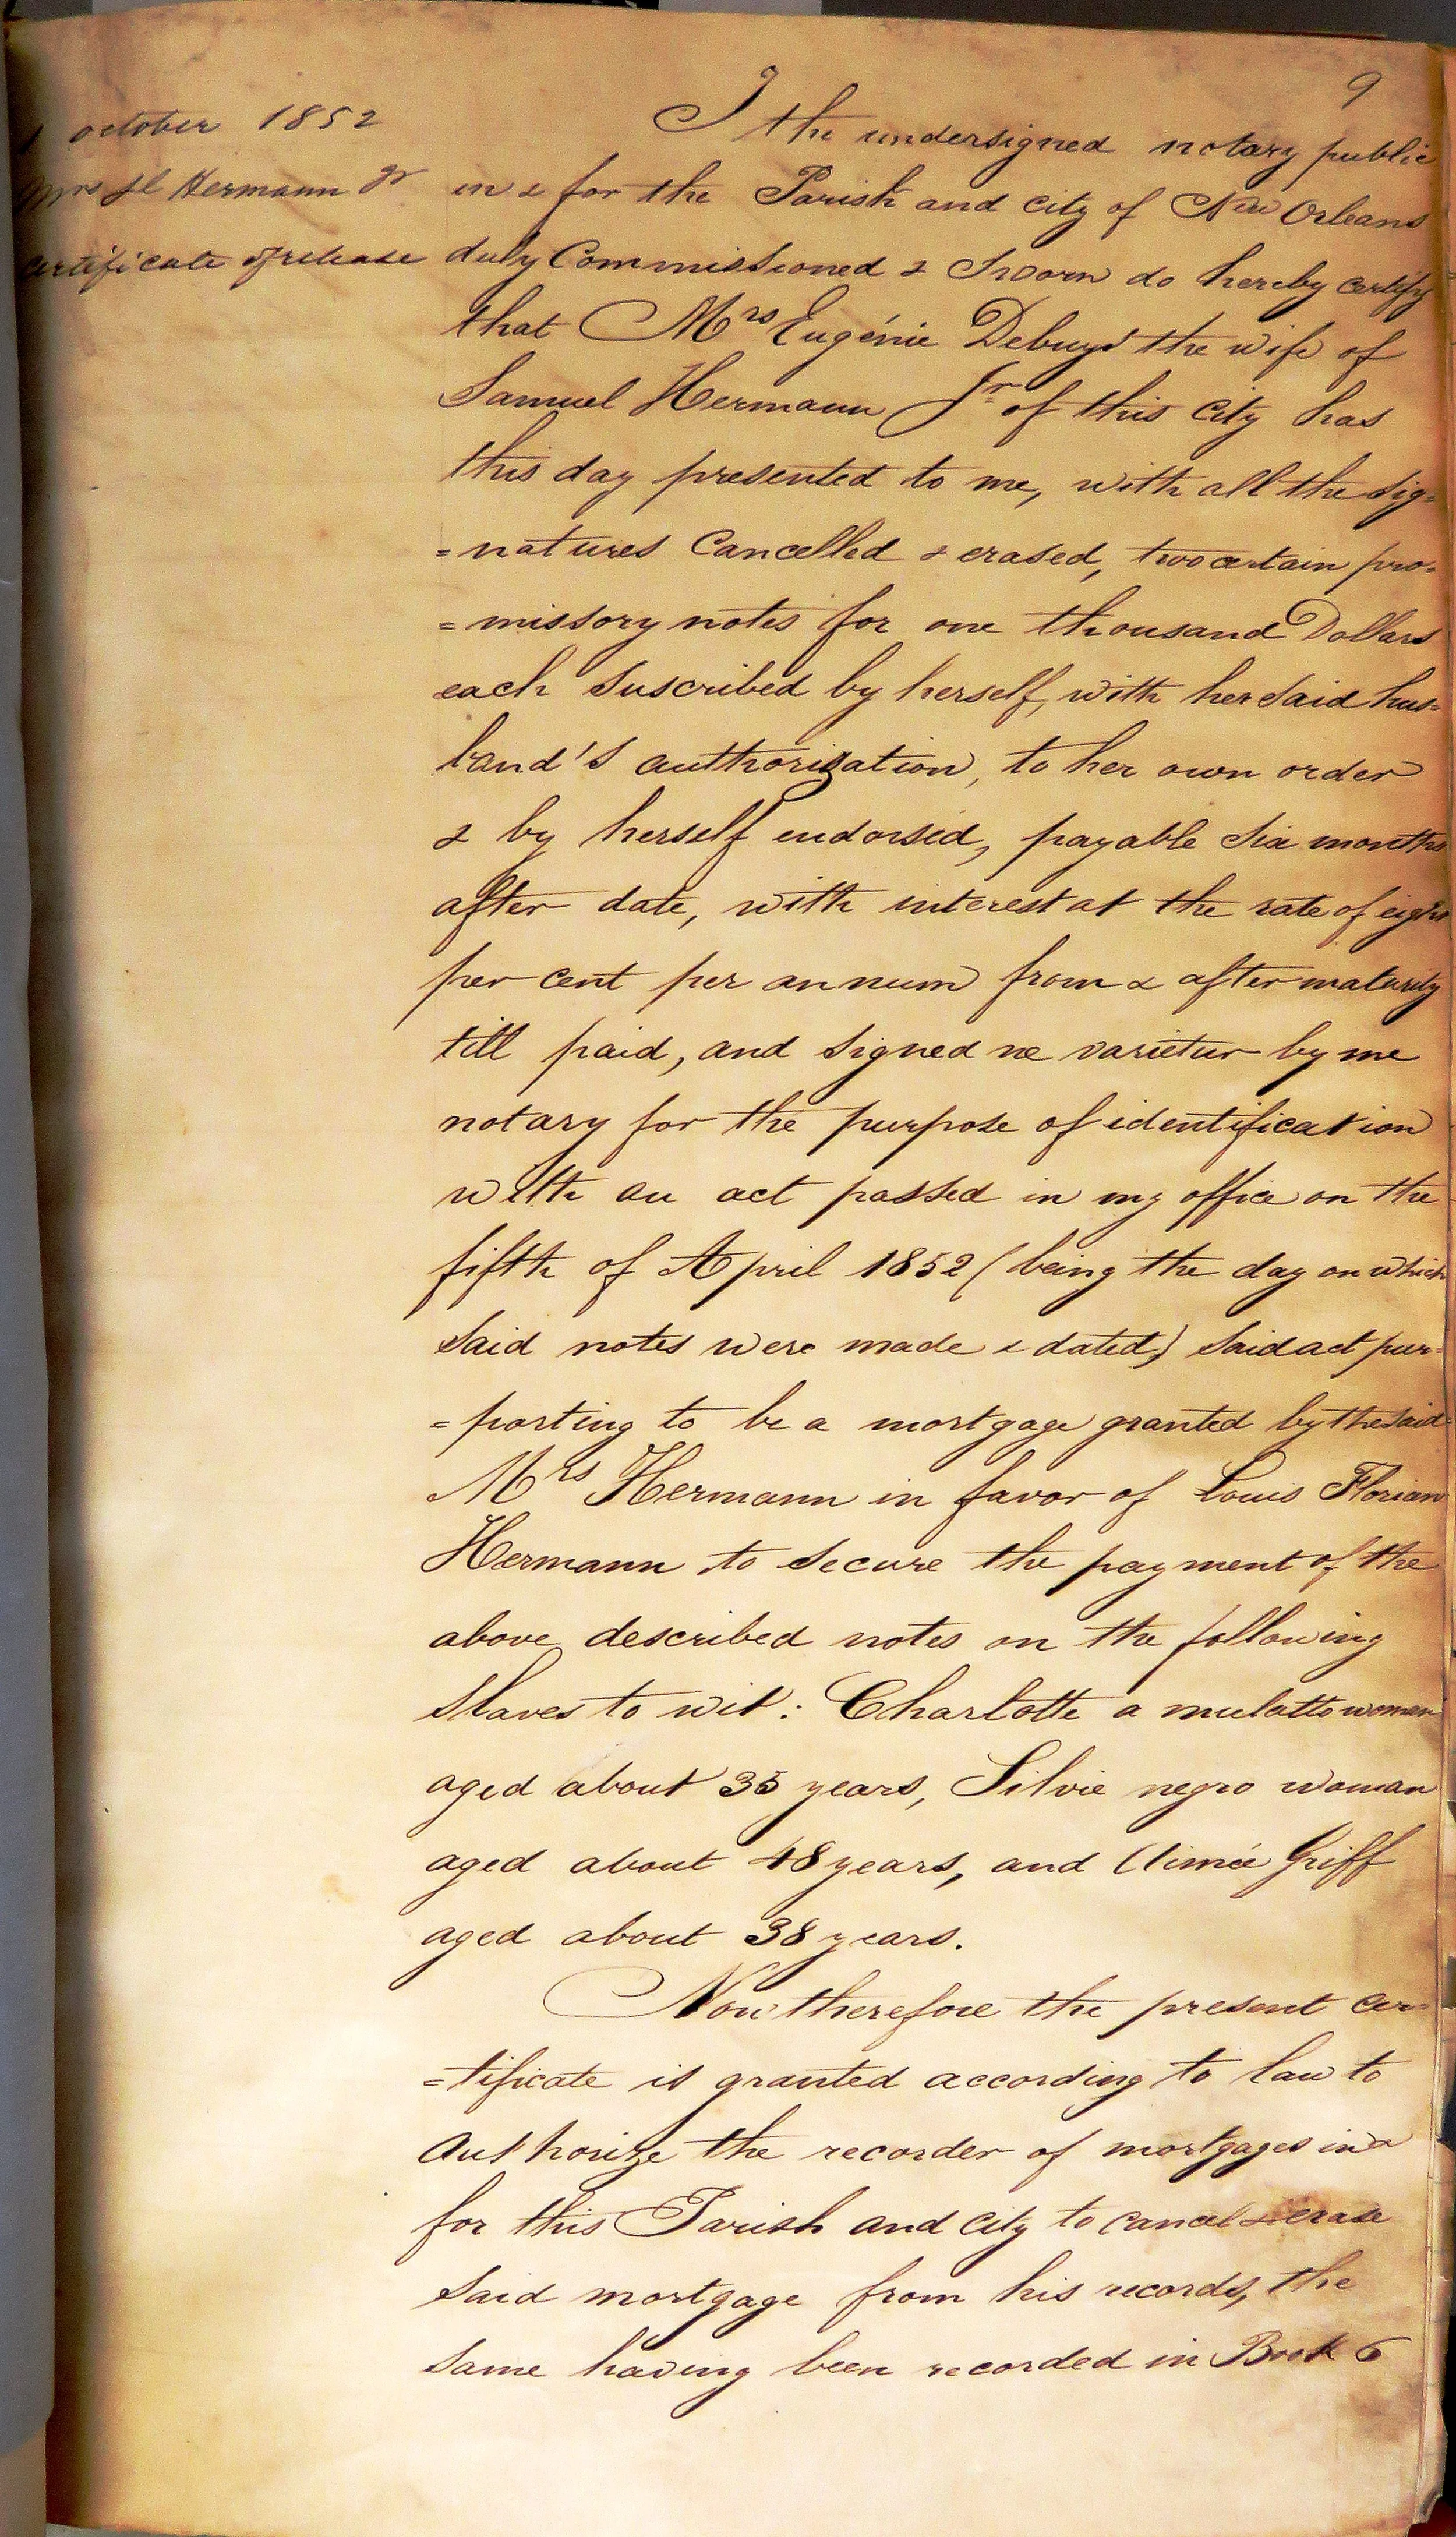 9
1 october 1852
Mrs Sl Hermann Jr
certificate of release
I the undersigned notary public
in & for the Parish and city of New Orleans
duly Commissioned & Sworn do hereby certify
that Mrs Eugénie Debuys the wife of
Samuel Hermann Jr of this city has
this day presented to me, with all the sig=
=natures Cancelled & erased, two certain pro=
=missory notes for one thousand Dollars
each suscribed by herself, with her said hus=
band's authorization, to her own order
& by herself endorsed, payable six months
after date, with interest at the rate of eight
per cent per annum from & after maturity
till paid, and signed ne varietur by me
notary for the purpose of identification
with an act passed in my office on the
fifth of April 1852 (being the day on which
said notes were made & dated) said act pur=
=porting to be a mortgage granted by the said
Mrs Hermann in favor of Louis Florian
Hermann to secure the payment of the
above described notes on the following
slaves to wit: Charlotte a mulatto woman
aged about 35 years, Silvie negro woman
aged about 48 years, and Aimée Griff
aged about 38 years.
Now therefore the present cer=
=tificate is granted according to law to
Authorize the recorder of mortgages in &
for this Parish and city to cancel & erase
said mortgage from his records, the
same having been recorded in Book 6